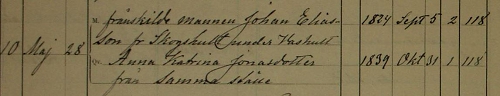 frånskilde mannen Johan Elias- 1824 Sept 5 2 118
son fr Skogshult under Hashult
10 Maj 28 Anna Katrina Jonasdotter 1839 Okt 31 1 118
från samma ställe